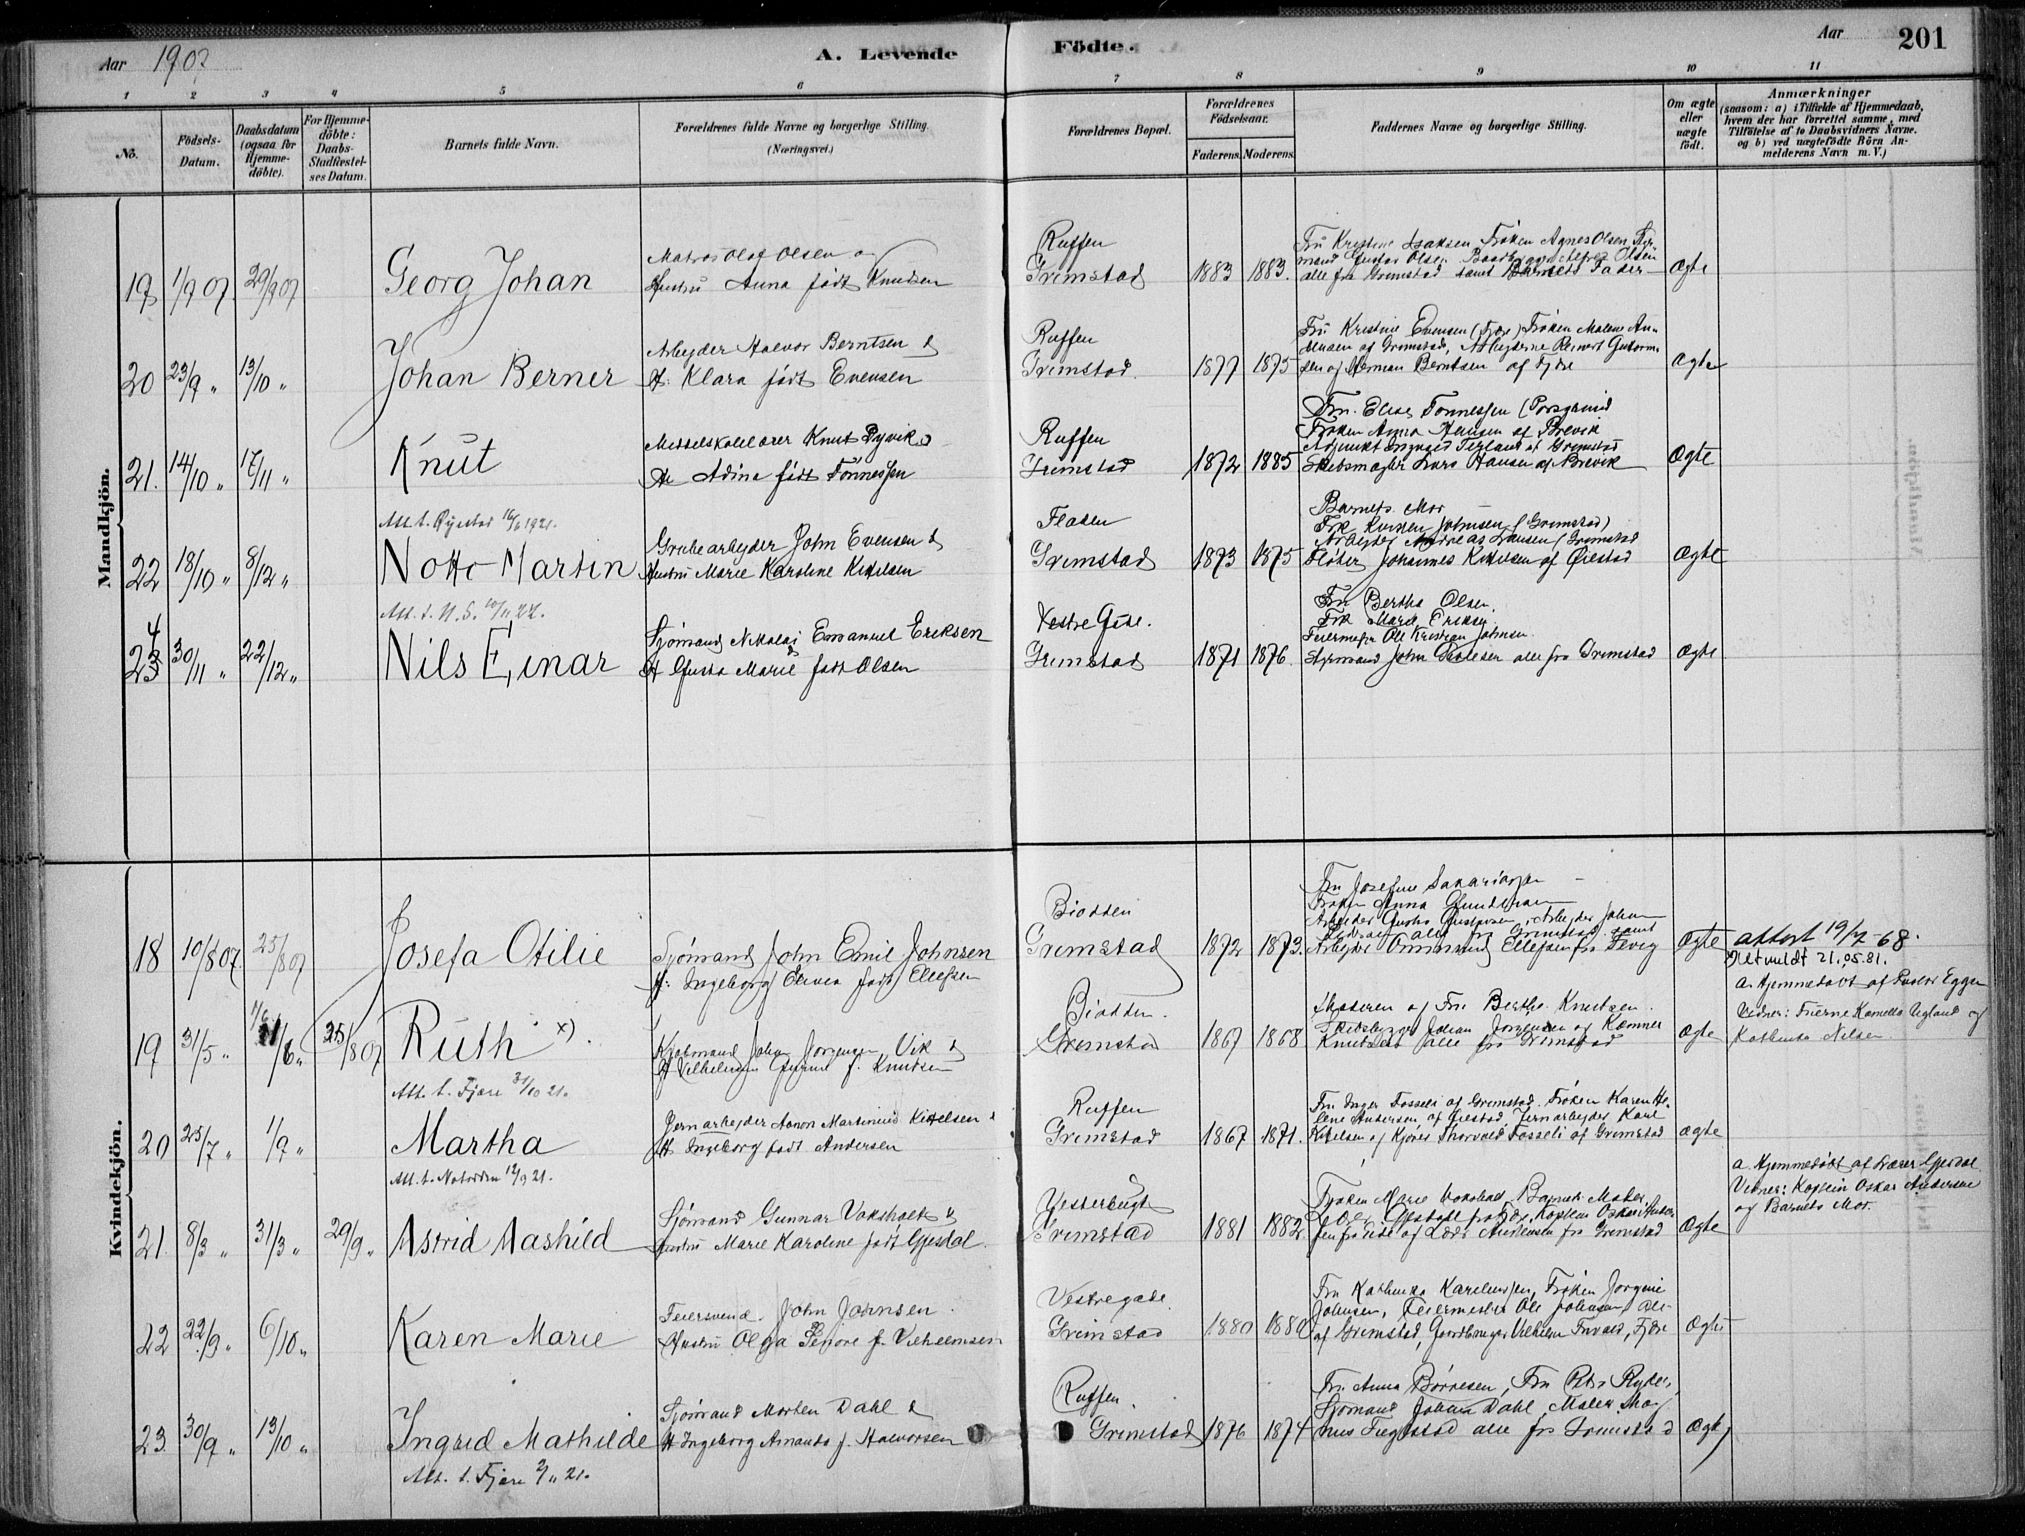 Aar 1907
A. Levende
Födte.
Aar
201
1 2 3 4 5 6 7 8 9 10 11
No.
Födsels-Datum.
Daabsdatum (ogsaa for Hjemme-döbte).
For Hjemme-döbte: Daabs-Stadfæstel-ses Datum.
Barnets fulde Navn.
Forældrenes fulde Navne og borgerlige Stilling.
(Næringsvei.)
Forældrenes Bopæl.
Forældrenes Födselsaar.
Faderens. Moderens.
Faddernes Navne og borgerlige Stilling.
Om ægte eller uægte födt.
Anmærkninger
(saasom: a) i Tilfælde af Hjemmedaab,
hvem der har forrettet samme, med
Tilföielse af to Daabsvidners Navne.
og b) ved uægtefödte Börn An-
melderens Navn m. V.)
Mandkjön.
19 1/9 07 29/9 07 Georg Johan
Matros Olaf Olsen og
Hustru Anna født Knudsen
Ruffen
Grimstad 1883 1883.
Fru Kristine Isaksen Frøken Agnes Olsen Styr-
mand Gustav Olsen Baadbygger Alfred Olsen
alle fra Grimstad samt Barnets Fader
Ægte
20 23/9 " 13/10 " Johan Berner
Arbeider Halvor Berntsen &
H. Klara født Evensen
Ruffen
Grimstad. 1877 1875
Fru Kristine Evensen (Fjære) Frøken Malene
af Grimstad, Arbeiderne Reinert Gutorm-
sen og Herman Berntsen af Fjære
Ægte
21. 14/10 " 17/11 " Knut
Middelskolelærer Knut Dyvik &
H. Adina født Tønnessen
Ruffen
Grimstad 1872 1885
Fru Elise Tønnessen (Porsgrund
Frøken Anna Hansen af Brevik
Adjunkt Terland af Grimstad
Skibsmægler Lars Hansen af Brevik
Ægte
Att. t. Øyestad 16/6 1921.
22 18/10 " 8/12 " Notto Martin
Grubearbejder John Evensen &
Hustru Marie Karoline Kittelsen
Fladen
Grimstad 1873 1875
Barnets Mor
Frk Johnsen (Grimstad)
Arbejder Andreas Larsen (Grimstad
Fløter Johannes Kittelsen af Øiestad
Ægte
Att. t. N. S. 10/11 22.
4
23 30/11 " 22/12 " Nils Einar
Sjømand Nikolai Emanuel Eriksen
& H Gusta Marie født Olsen
Vestre Gade.
Grimstad 1871 1876.
Fru Bertha Olsen.
Frk Marie Eriksen
Feiermester Ole Kristian Johnsen
Styrmand John alle fra Grimstad
Ægte
Kvindekjön.
18 10/8 07. 25/8 07 Josefa Otilie
Sjømand John Emil Johnsen
H. Ingeborg Elevine født Ellefsen
Biodden
Grimstad 1872 1873.
Fru Josefine Sakariassen
Frøken Anna Gundersen
Arbejder Gustav Gustavsen, Arbejder Johan
alle fra Grimstad samt
Arbejder Ommund Ellefsen fra Fevig
Ægte
attest 19/7 - 68.
Utmeldt 21.05.81.
19 31/5 " 11/6 " 25/8 07 Ruth x)
Kjøbmand John Jørgensen Vik &
H Vilhelmine f. Knudsen
Biodden.
Grimstad 1867 1868
Faderen og Fru Berthe Knutsen
Skibsbygger Johan Jørgensen og Kæmner
Knutsen alle fra Grimstad
Ægte
a. Hjemmedøbt af Pastor Egger
Vidner: Fruerne Kamilla Ugland og
Kathinka Nilsen
Att. t. Fjære 31/10 21.
20 25/7 " 1/9 " Martha
Jernarbejder Aanon Martinius Kittelsen &
H Ingeborg født Andersen
Ruffen
Grimstad 1867 1871.
Fru Inger Fosseli af Grimstad. Frøken Karen He-
lene Andersen af Øiestad, Jernarbejder Karl
Kittelsen og Kjører Thorvald Fosseli af Grimstad
Ægte
Att. t. Notodden 12/9 21.
21. 8/3 " 31/3 " 29/9 " Astrid Aashild
Sjømand Gunnar Voksholt &
Hustru Marie Karoline født Gjesdal.
Vesterbugt
Grimstad 1881 1882
Frøken Marie Voksholt, Barnets Moder,
Kaptein Oskar Ander-
sen fra Eide og Lods Andersen fra Grimstad
Ægte
a. Hjemmedøbt af Lærer Gjesdal
Vidner: Kaptein Oskar Andersen
og Barnets Mor.
22 22/9 " 6/10 " Karen Marie
Feiersvend. John Johnsen
& Hustru Olga Senore f. Vilhelmsen
Vestregade.
Grimstad 1880 1880
Fru Kathinka Karelinssen, Frøken Jørgine
Johnsen, Feiermester Ole Johnsen, alle
af Grimstad, Gaardbruger Vilhelm Fjære
Ægte
23 30/9 " 13/10 " Ingrid Mathilde
Sjømand Morten Dahl &
H Ingeborg Amanda f. Halvorsen
Ruffen.
Grimstad 1876 1874
Fru Anna Børresen, Fru Petra Ryder,
Sjømand Johan Dahl, Maler Mag-
nus Fuglestad alle fra Grimstad
Ægte
Att. t. Fjære 2/11 21.